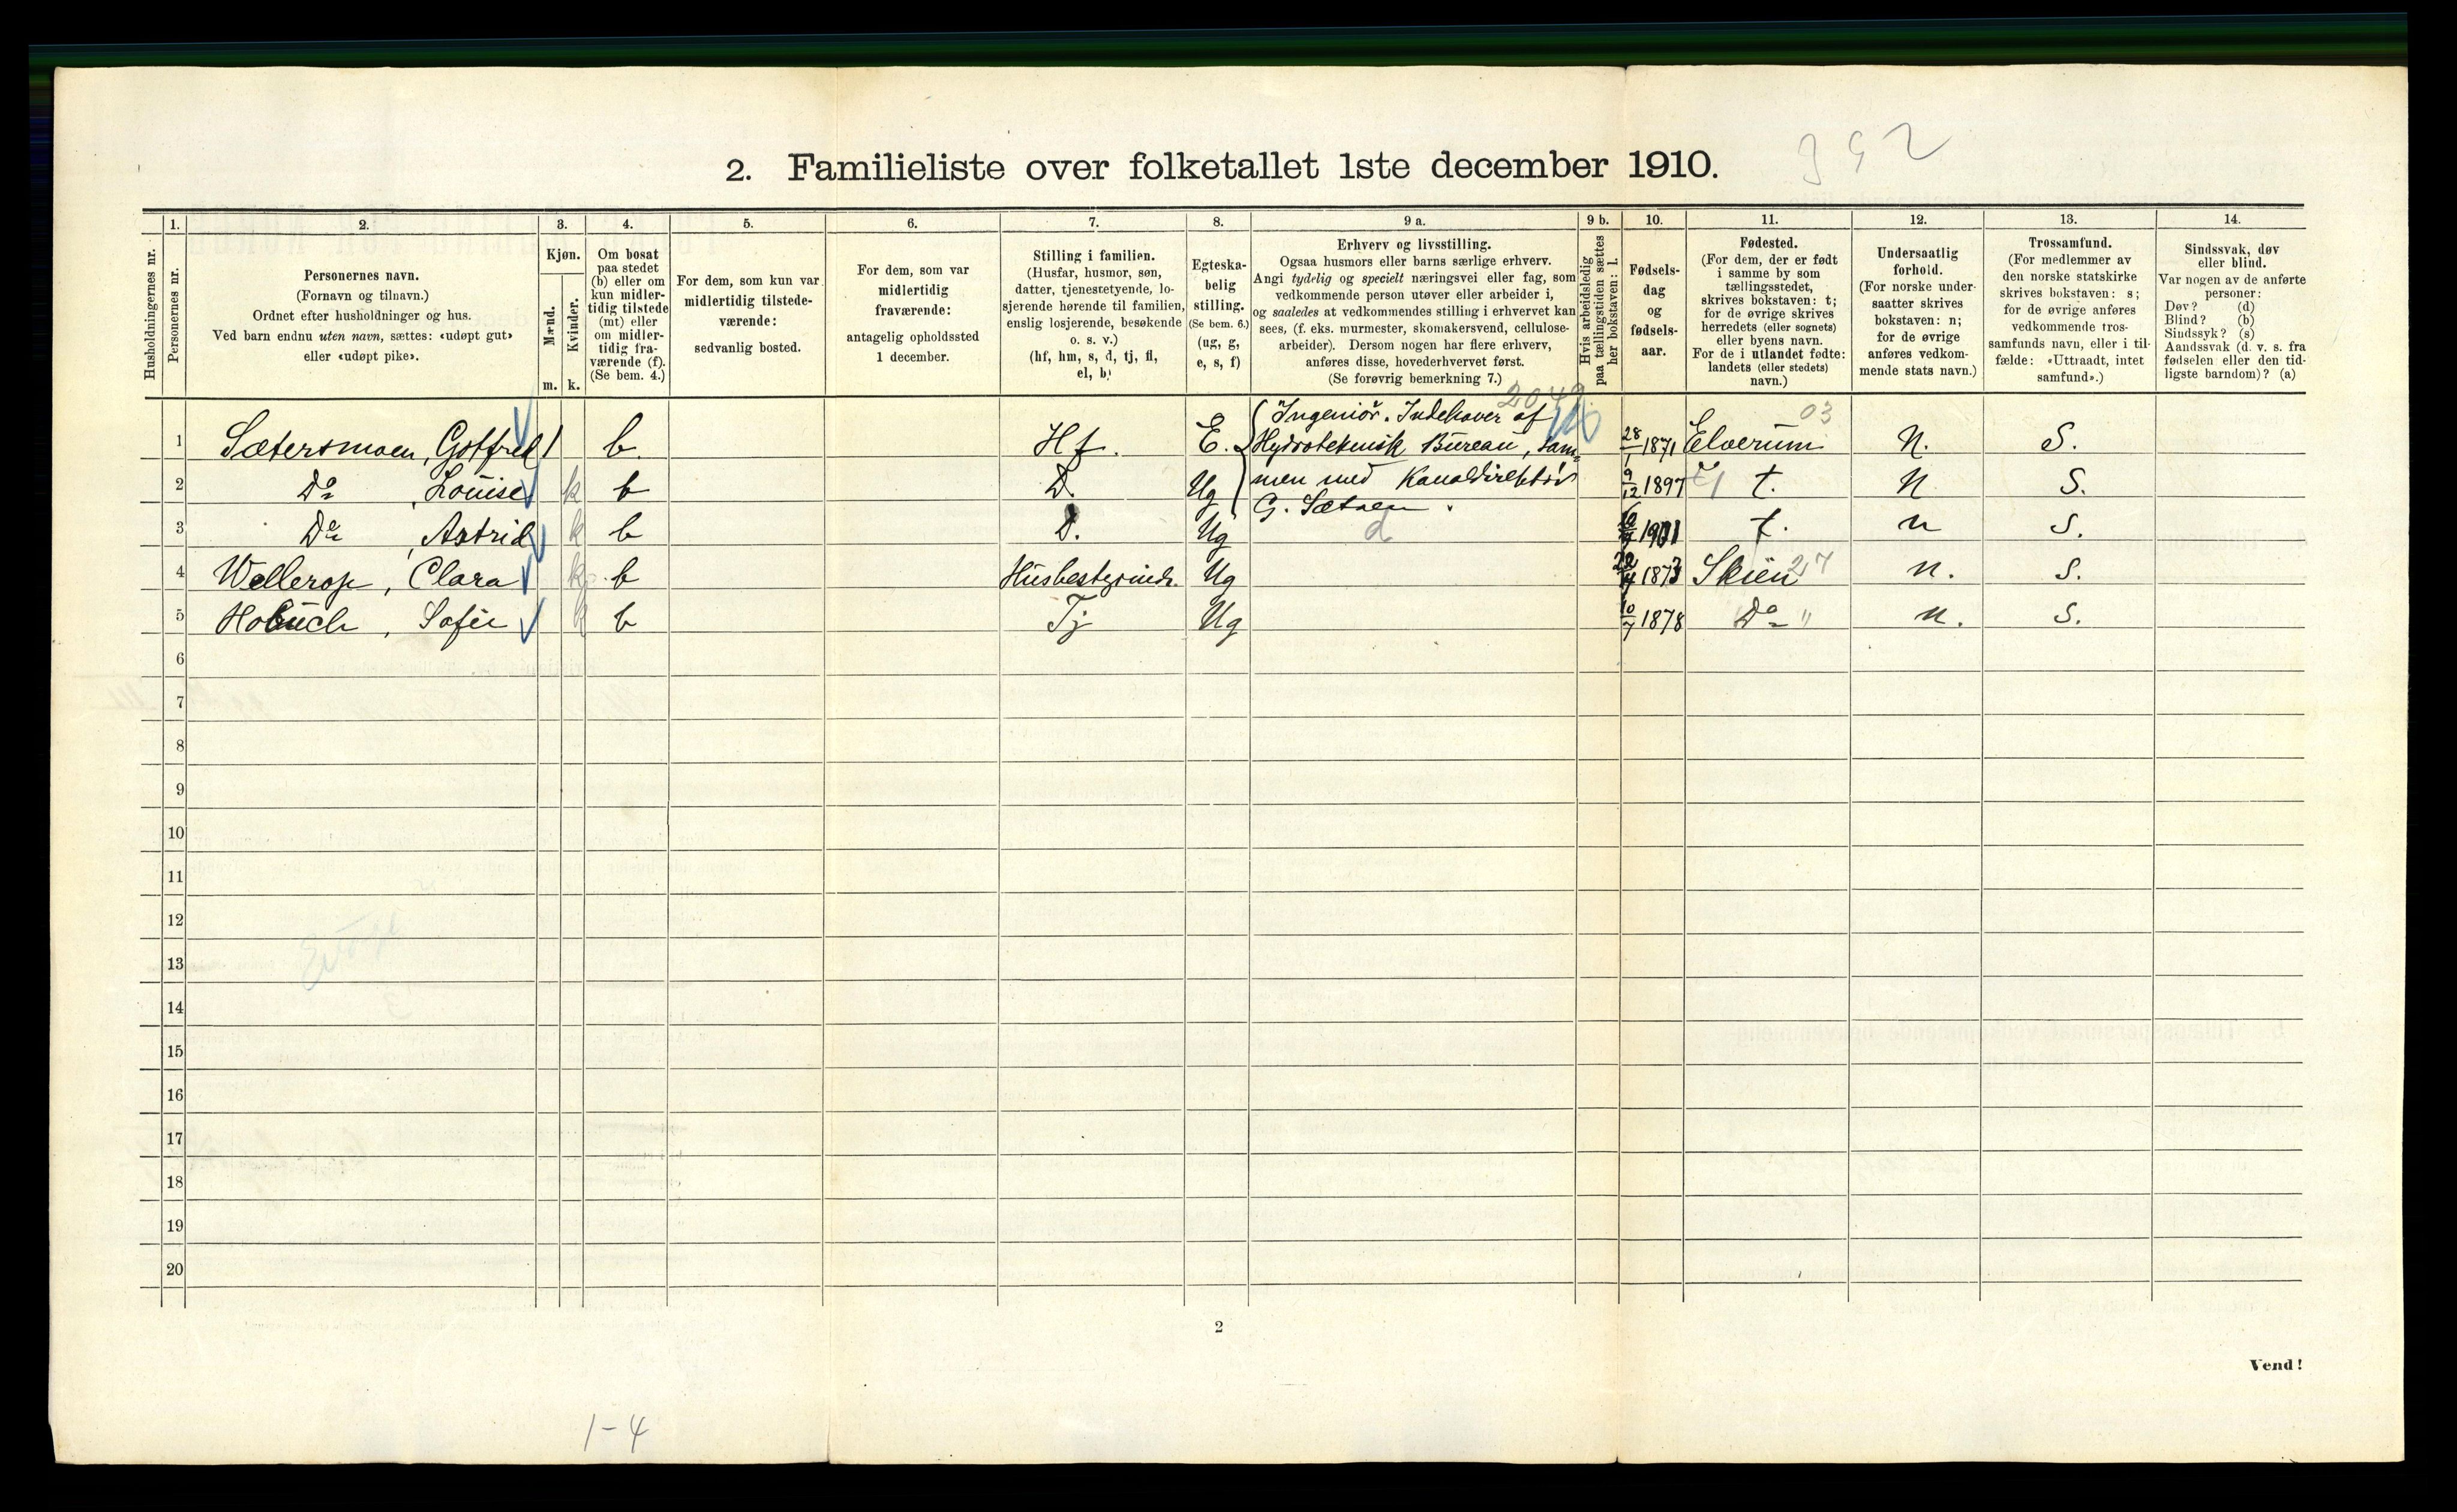 2. Familieliste over folketallet 1ste december 1910.
392
1. 2. 3. 4. 5. 6. 7. 8. 9 a. 9 b. 10. 11. 12. 13. 14.
Husholdningernes nr.
Personernes nr.
Personernes navn.
(Fornavn og tilnavn.)
Ordnet efter husholdninger og hus.
Ved barn endnu uten navn, sættes: «udøpt gut»
eller «udøpt pike».
Kjøn.
Mænd.
m.
Kvinder.
k.
Om bosat
paa stedet
(b) eller om
kun midler-
tidig tilstede
(mt) eller
om midler-
tidig fra-
værende (f).
(Se bem. 4.)
For dem, som kun var
midlertidig tilstede-
værende:
sedvanlig bosted.
For dem, som var
midlertidig
fraværende:
antagelig opholdssted
1 december.
Stilling i familien.
(Husfar, husmor, søn,
datter, tjenestetyende, lo-
sjerende hørende til familien,
enslig losjerende, besøkende
o. s. v.)
(hf, hm, s, d, tj, fl,
el, b)
Egteska-
belig
stilling.
(Se bem. 6.)
(ug, g,
e, s, f)
Erhverv og livsstilling.
Ogsaa husmors eller barns særlige erhverv.
Angi tydelig og specielt næringsvei eller fag, som
vedkommende person utøver eller arbeider i,
og saaledes at vedkommendes stilling i erhvervet kan
sees, (f. eks. murmester, skomakersvend, cellulose-
arbeider). Dersom nogen har flere erhverv,
anføres disse, hovederhvervet først.
(Se forøvrig bemerkning 7.)
Hvis arbeidsledig
paa tællingstiden sættes
her bokstaven: l.
Fødsels-
dag
og
fødsels-
aar.
Fødested.
(For dem, der er født
i samme by som
tællingsstedet,
skrives bokstaven: t;
for de øvrige skrives
herredets (eller sognets)
eller byens navn.
For de i utlandet fødte:
landets (eller stedets)
navn.)
Undersaatlig
forhold.
(For norske under-
saatter skrives
bokstaven: n;
for de øvrige
anføres vedkom-
mende stats navn.)
Trossamfund.
(For medlemmer av
den norske statskirke
skrives bokstaven: s;
for de øvrige anføres
vedkommende tros-
samfunds navn, eller i til-
fælde: «Uttraadt, intet
samfund».)
Sindssvak, døv
eller blind.
Var nogen av de anførte
personer:
Døv? (d)
Blind? (b)
Sindssyk? (s)
Aandssvak (d. v. s. fra
fødselen eller den tid-
ligste barndom)? (a)
1 Sætersmoen, Gotfred 1 b. Hf. E. 28/1 1871 Elverum 03 N. S.
Ingeniør. Indehaver af
Hydroteknisk Bureau, sam-
men med Kanaldirektør
G. Sætren.
2 Do, Louise k b D. Ug 9/12 1897 t. N S.
3 Do, Astrid k b D. Ug d 1901 t. n S.
4 Wellerop, Clara k b Husbestyrind. Ug 1873 Skien 27 n. S.
5 Hobuch, Sofie k b Tj Ug 10/7 1878 Do " n. S.
6
7
8
9
10
11
12
13
14
15
16
17
18
19
20
2
Vend!
1-4